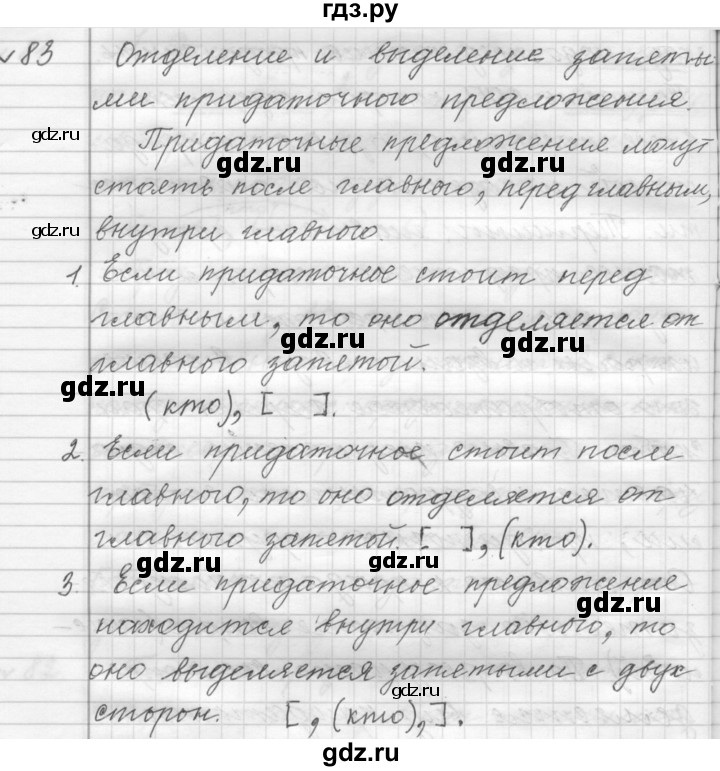 гдз.ру
№83 Отделение и выделение запяты
ми придаточного предложения.
gdz.ru
Придаточные предложения могут
gdz.ru gdz.ru
стоять после главного, перед главным,
gdz.ru
внутри главного.
1. Если придаточное стоит перед
главным, то оно отделяется от
gdz.ru gdz.ru
главного запятой.
gdz.ru
(кто), [ ].
2. Если придаточное стоит после
главного, то оно отделяется от
главного запятой [ ], (кто).
gdz.ru gdz.ru
3. Если придаточное предложение
gdz.ru
находится внутри главного, то
оно выделяется запятыми с двух
gdz.ru
сторон. [ , (кто), ].
gdz.ru